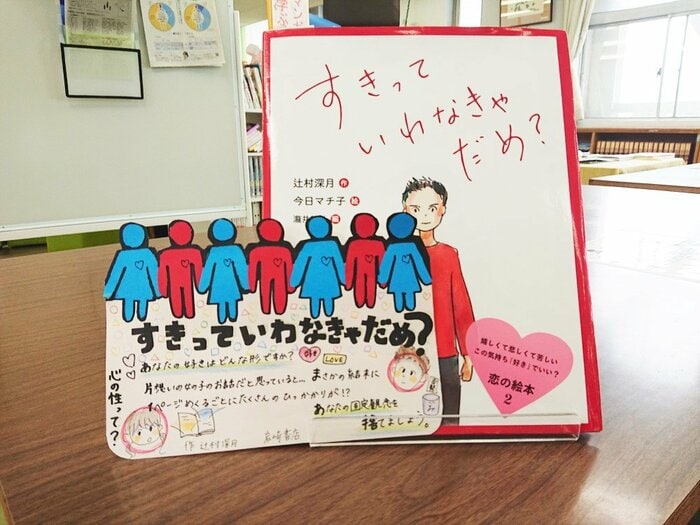 すきって
いわなきゃ
だめ？
辻村深月 作
今日マチ子 絵
瀧井
嬉しくて悲しくて苦しい
この気持ち「好き」でいい？
恋の絵本
2
すきっていわなきゃだめ？
あなたの好きはどんな形ですか？
好き
LOVE
片想いの女の子のお話だと思っていると…
まさかの結末に
1ページめくるごとにたくさんのひっかかりが!?
あなたの固定観念を
捨てましょう。
心の性って？
作 辻村深月
岩崎書店